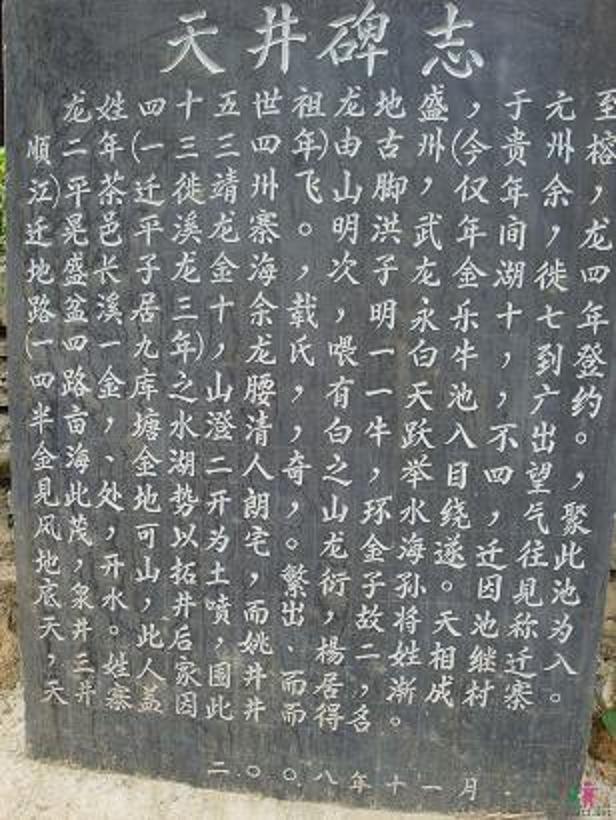 天井碑志
龙姓四十五世祖龙地盛，于元至
順二年(一三三四年)由古州(今贵州榕
江)平茶迁徙靖州飞山脚，仅年余，
迁晃邑平溪龙寨。明洪武年间，龙
地盛长子龙金海，次子龙金湖徙四
路盆溪居三十余载，明永乐十七年
(一四一九年)，龙氏喂一白牛，到登
四路金库山腰，有一天池，广约
半亩，塘水澄清，白牛跃入不出。
金海、金湖二人奇之，举目四望，
見此处地势开朗，山环水绕，气聚
风茂，可以为宅。龙金海遂迁往此
地，开山拓土，繁衍子孙。因見池
底泉水，井喷而出，故将天池称为
天井。此后，姚.楊二姓相继迁入
，三姓人家围井而居，渐成村寨。
天井寨盖因此井而得名。
二〇〇八年十一月